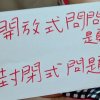 開放式問題
封閉式問題